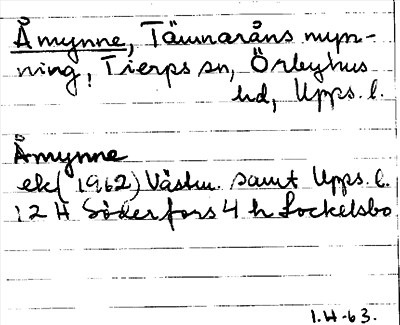 Åmynne, Tämnaråns myn-
ning, Tierps sn, Örbyhus
hd, Upps. l.
Åmynne
ek (1962) Västm. samt Upps. l.
12 H Söderfors 4 h Sockelsbo
1.H-63.